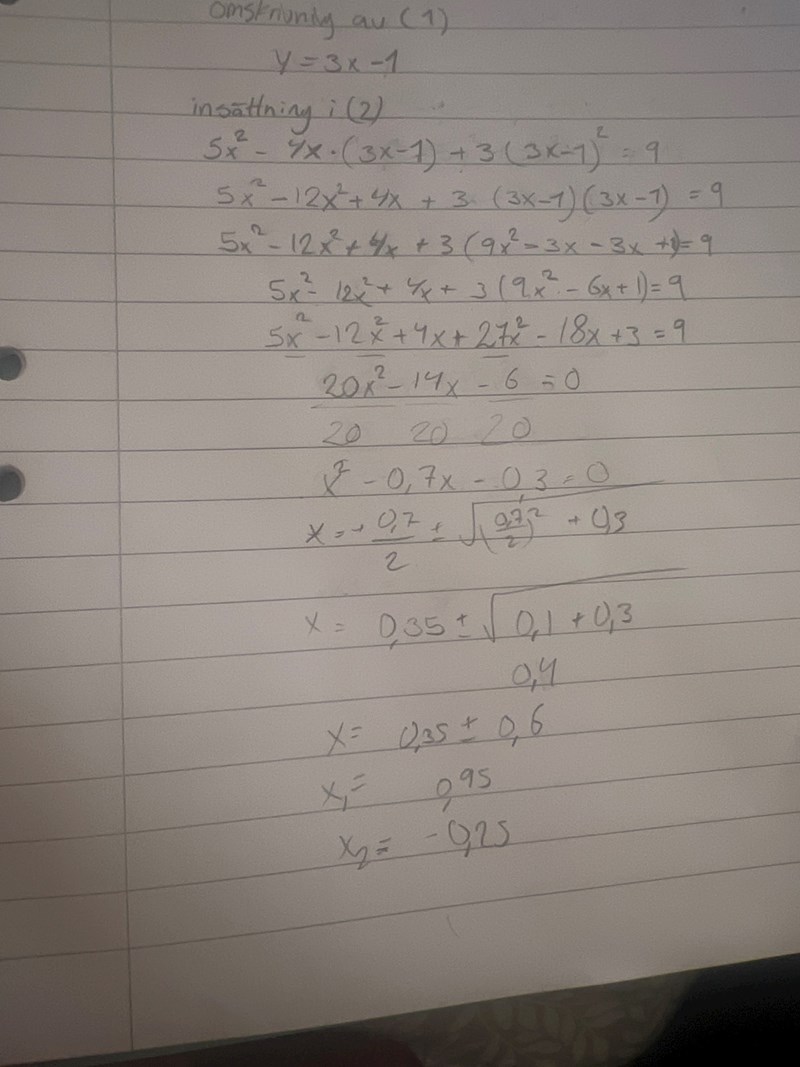 omskrivning av (1)
y = 3x - 1
insättning i (2)
5x² - 4x · (3x-1) + 3(3x-1)² = 9
5x² - 12x² + 4x + 3 · (3x-1)(3x-1) = 9
5x² - 12x² + 4x + 3(9x² - 3x - 3x + 1) = 9
5x² - 12x² + 4x + 3(9x² - 6x + 1) = 9
5x² - 12x² + 4x + 27x² - 18x + 3 = 9
20x² - 14x - 6 = 0
20 20 20
x² - 0,7x - 0,3 = 0
x = + 0,7/2 ± √((0,7/2)² + 0,3
x = 0,35 ± √0,1 + 0,3
0,4
x = 0,35 ± 0,6
x₁ = 0,95
x₂ = -0,25